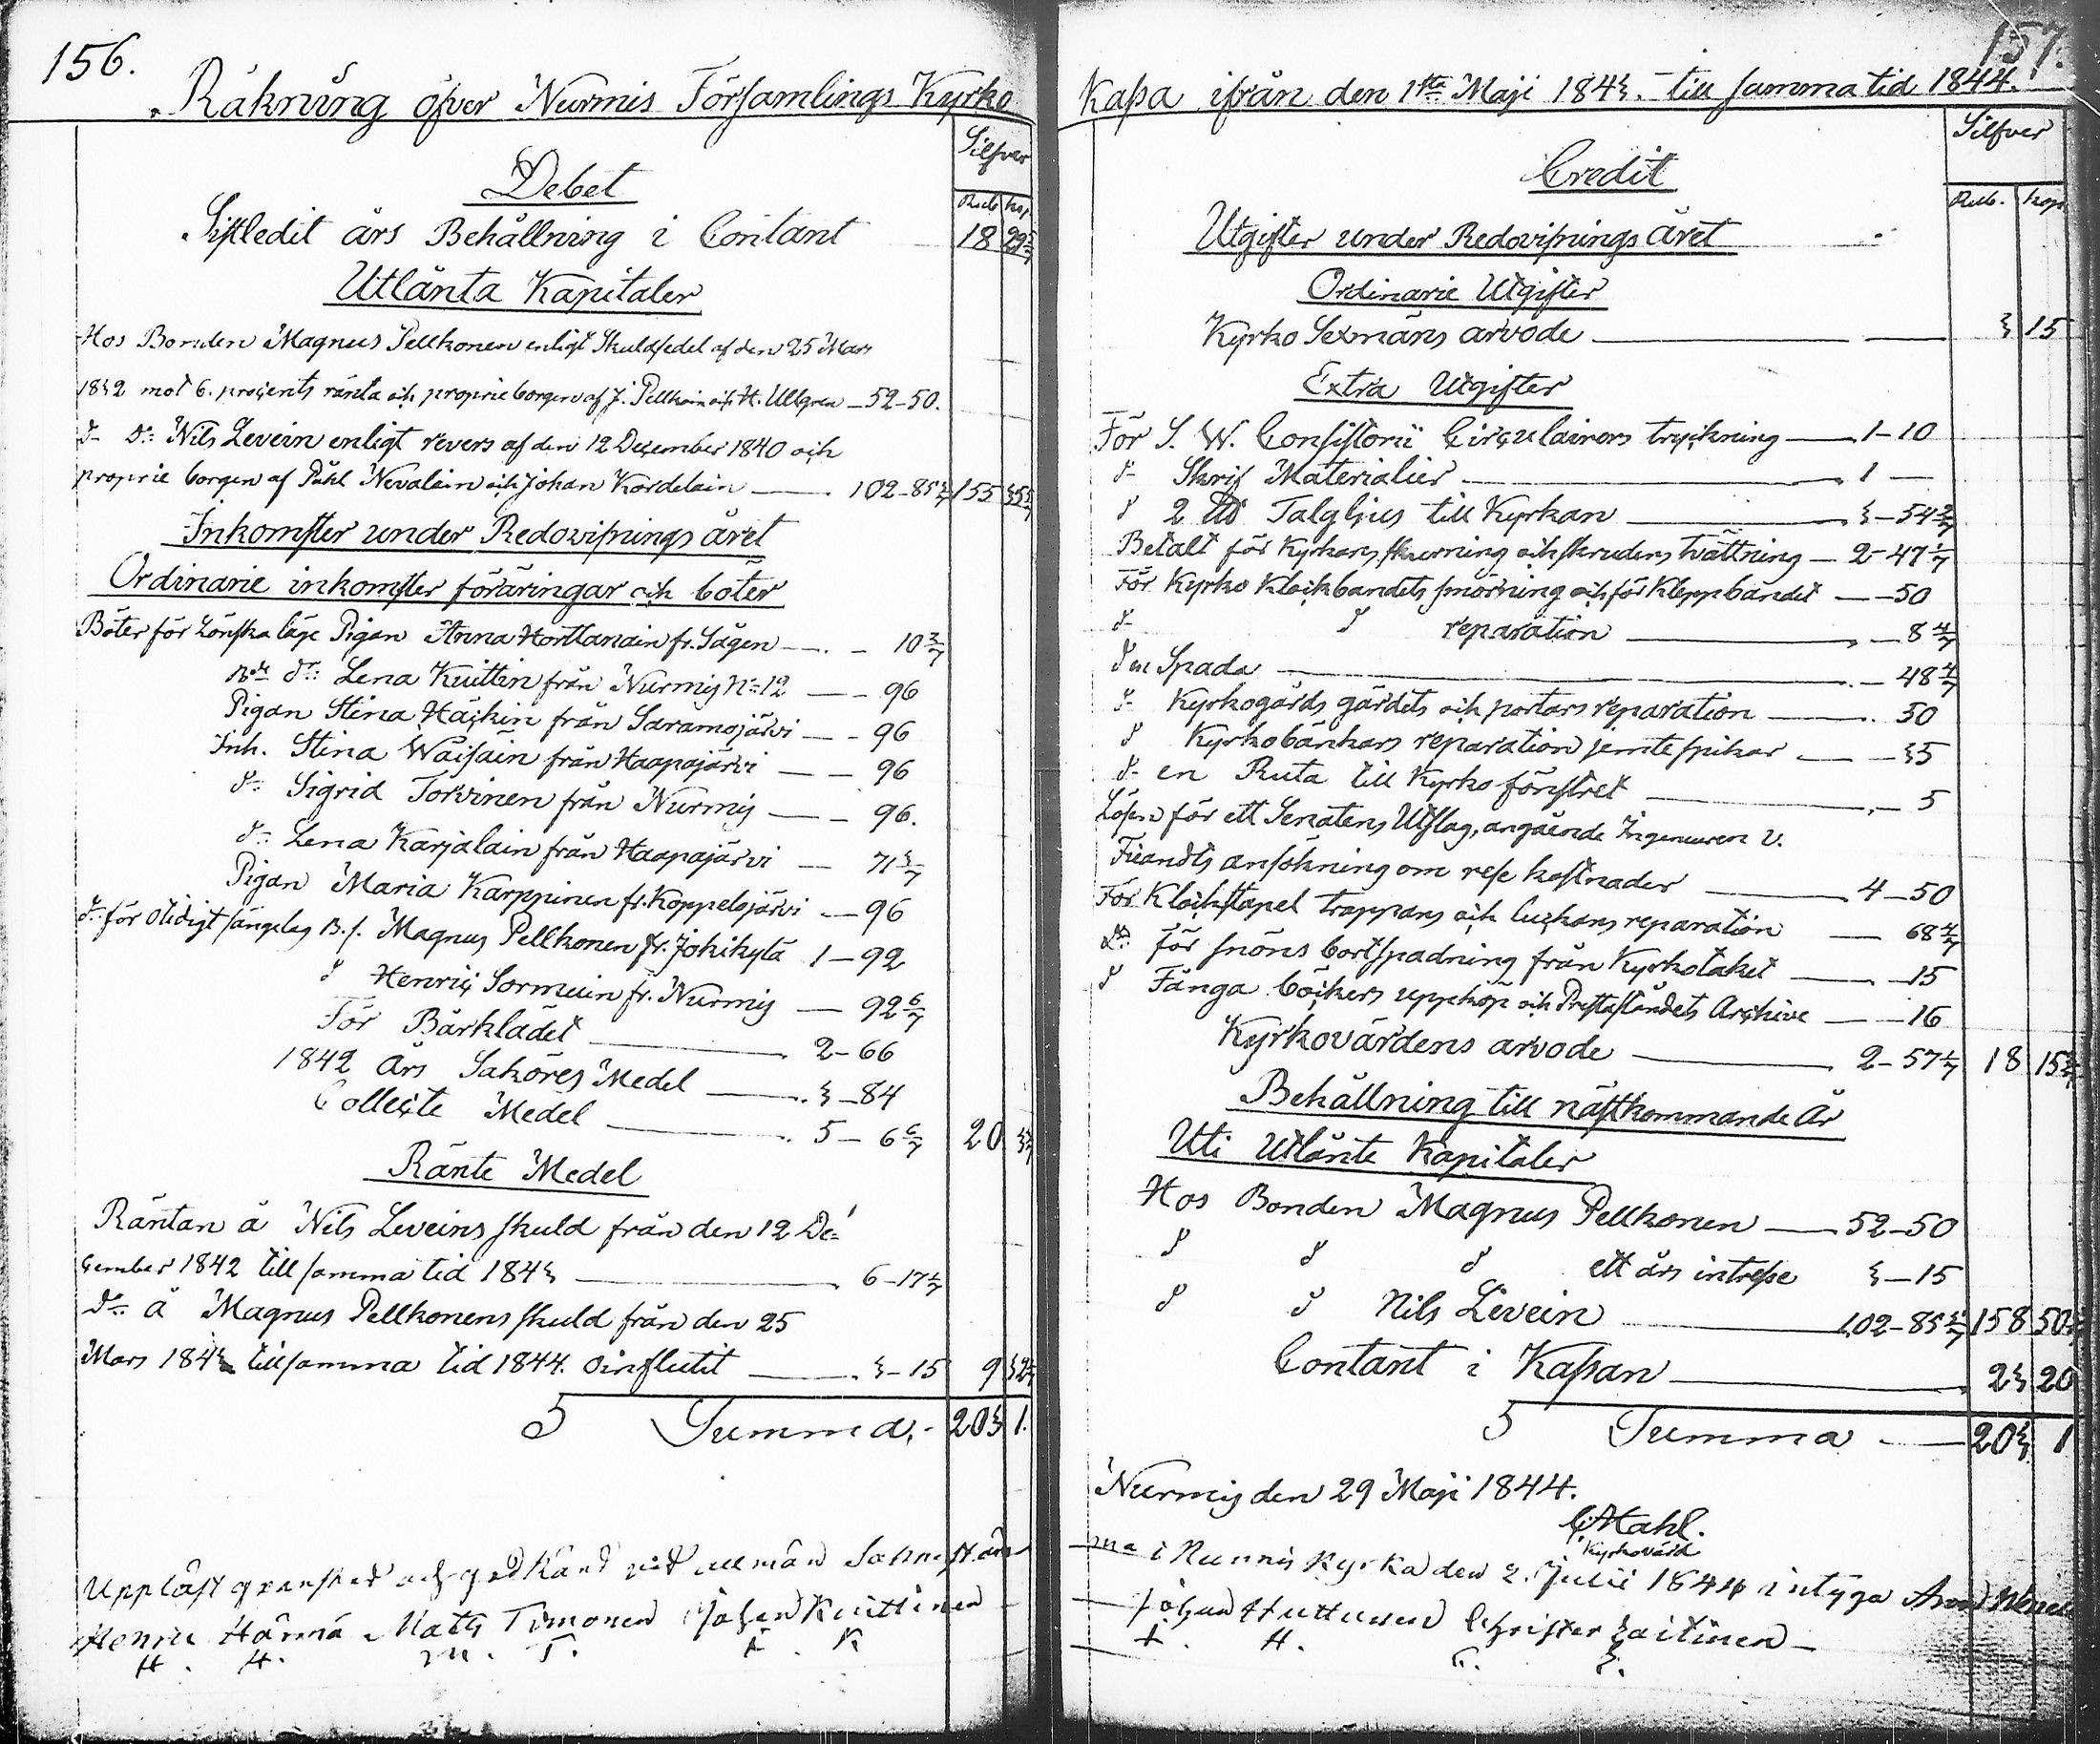 156.
Räkning öfver Nurmis Församlings Kyrko
Silfver
Debet
Rub kop
Sistledit års Behållning i Contant 18 29 5/7
Utlånta Kapitaler
Hos Bonden Magnus Pellkonen enligt Skuldsedel af den 25 Mars
1832 mot 6. procents ränta och proprie borgen af J. Pellkoin och H. Ullgren – 52–50.
d– D:o Nils Levein enligt revers af den 12 December 1840 och
proprie borgen af Påhl Nevalain och Johan Kordelain — 102–85 5/7 155 35 5/7
Inkomster under Redovisnings året
Ordinarie inkomster föräringar och böter
Böter för Lönskaläge Pigan Anna Horttanain fr. Sågen — 10 2/7
d:o Lena Kuittin från Nurmis N:o 12 — 96
Pigan Stina Häckin från Saramojärvi — 96
Inh. Stina Wäisäin från Haapajärvi — 96
d:o Sigrid Torvinen från Nurmis — 96.
d:o Lena Karjalain från Haapajärvi — 71 3/7
Pigan Maria Karppinen fr. Koppelojärvi — 96
d:o för otidigt sängelag B. s. Magnus Pellkonen fr. Jokikylä 1–92
d Henric Sormuin fr. Nurmis — 92 6/7
För Bårklädet — 2–66
1842 Års Saköres Medel — 3–84
Collecte Medel — 5–6 6/7 20 3 3/7
Ränte Medel
Räntan å Nils Leveins skuld från den 12 De=
cember 1842 till samma tid 1843 — 6–17 1/7
D:o å Magnus Pellkonens skuld från den 25
Mars 1843 till samma tid 1844. oinflutit — 3–15 9 32 1/7
S Summa.– 203 1.
Uppläst granskad och godkänd vid allmän Sockne stäm
Henric Härmä Mats Timonen Johan Kuittinen
H. H. M. T. I. K
157.
Kassa ifrån den 1sta Maji 1843. till samma tid 1844.
Silfver
Credit
Rub. kop
Utgifter under Redovisnings Året
Ordinarie Utgifter
Kyrko Sexmäns arvode — 3 15
Extra Utgifter
För S. W. Consistorii Circulairers tryckning — 1–10
d– Skrif Materialier — 1 —
d 2 Talgljus till Kyrkan — 3–54 2/7
Betalt för Kyrkans skurning och skrudens tvättning — 2–47 1/7
För Kyrko Klockbandets smörning och för Kleppbandet — 50
d– d reparation — 8 4/7
d en Spada — 48 4/7
d– Kyrkogårds gärdets och portars reparation — 50
d Kyrkobänkars reparation jemte spikar — 35
d– en Ruta till Kyrko fönstret — 5
Lösen för ett Senatens Utslag, angående Ingenieuren v.
Fieandts ansökning om rese kostnader — 4–50
För Klockstapel trappans och luckans reparation — 68 4/7
D:o för snöns bortspadning från Kyrkotaket — 15
d Fånga böckers uppköp och Prestaståndets Archive — 16
Kyrkovärdens arvode — 2–57 1/7 18 15 2/7
Behållning till nästkommande År
Uti Utlånte Kapitaler
Hos Bonden Magnus Pellkonen — 52–50
d d d ett års intresse 3–15
d d Nils Levein — 102–85 5/7 158 50 5/7
Contant i Kassan — 23 20
S Summa — 203 1
Nurmis den 29 Maji 1844.
C. Stahl.
Kyrkovärd
ma i Nurmis Kyrka den 2. Julii 1844 intyga
Johan Huttunen Christer Laitinen –
I. H. C. L.